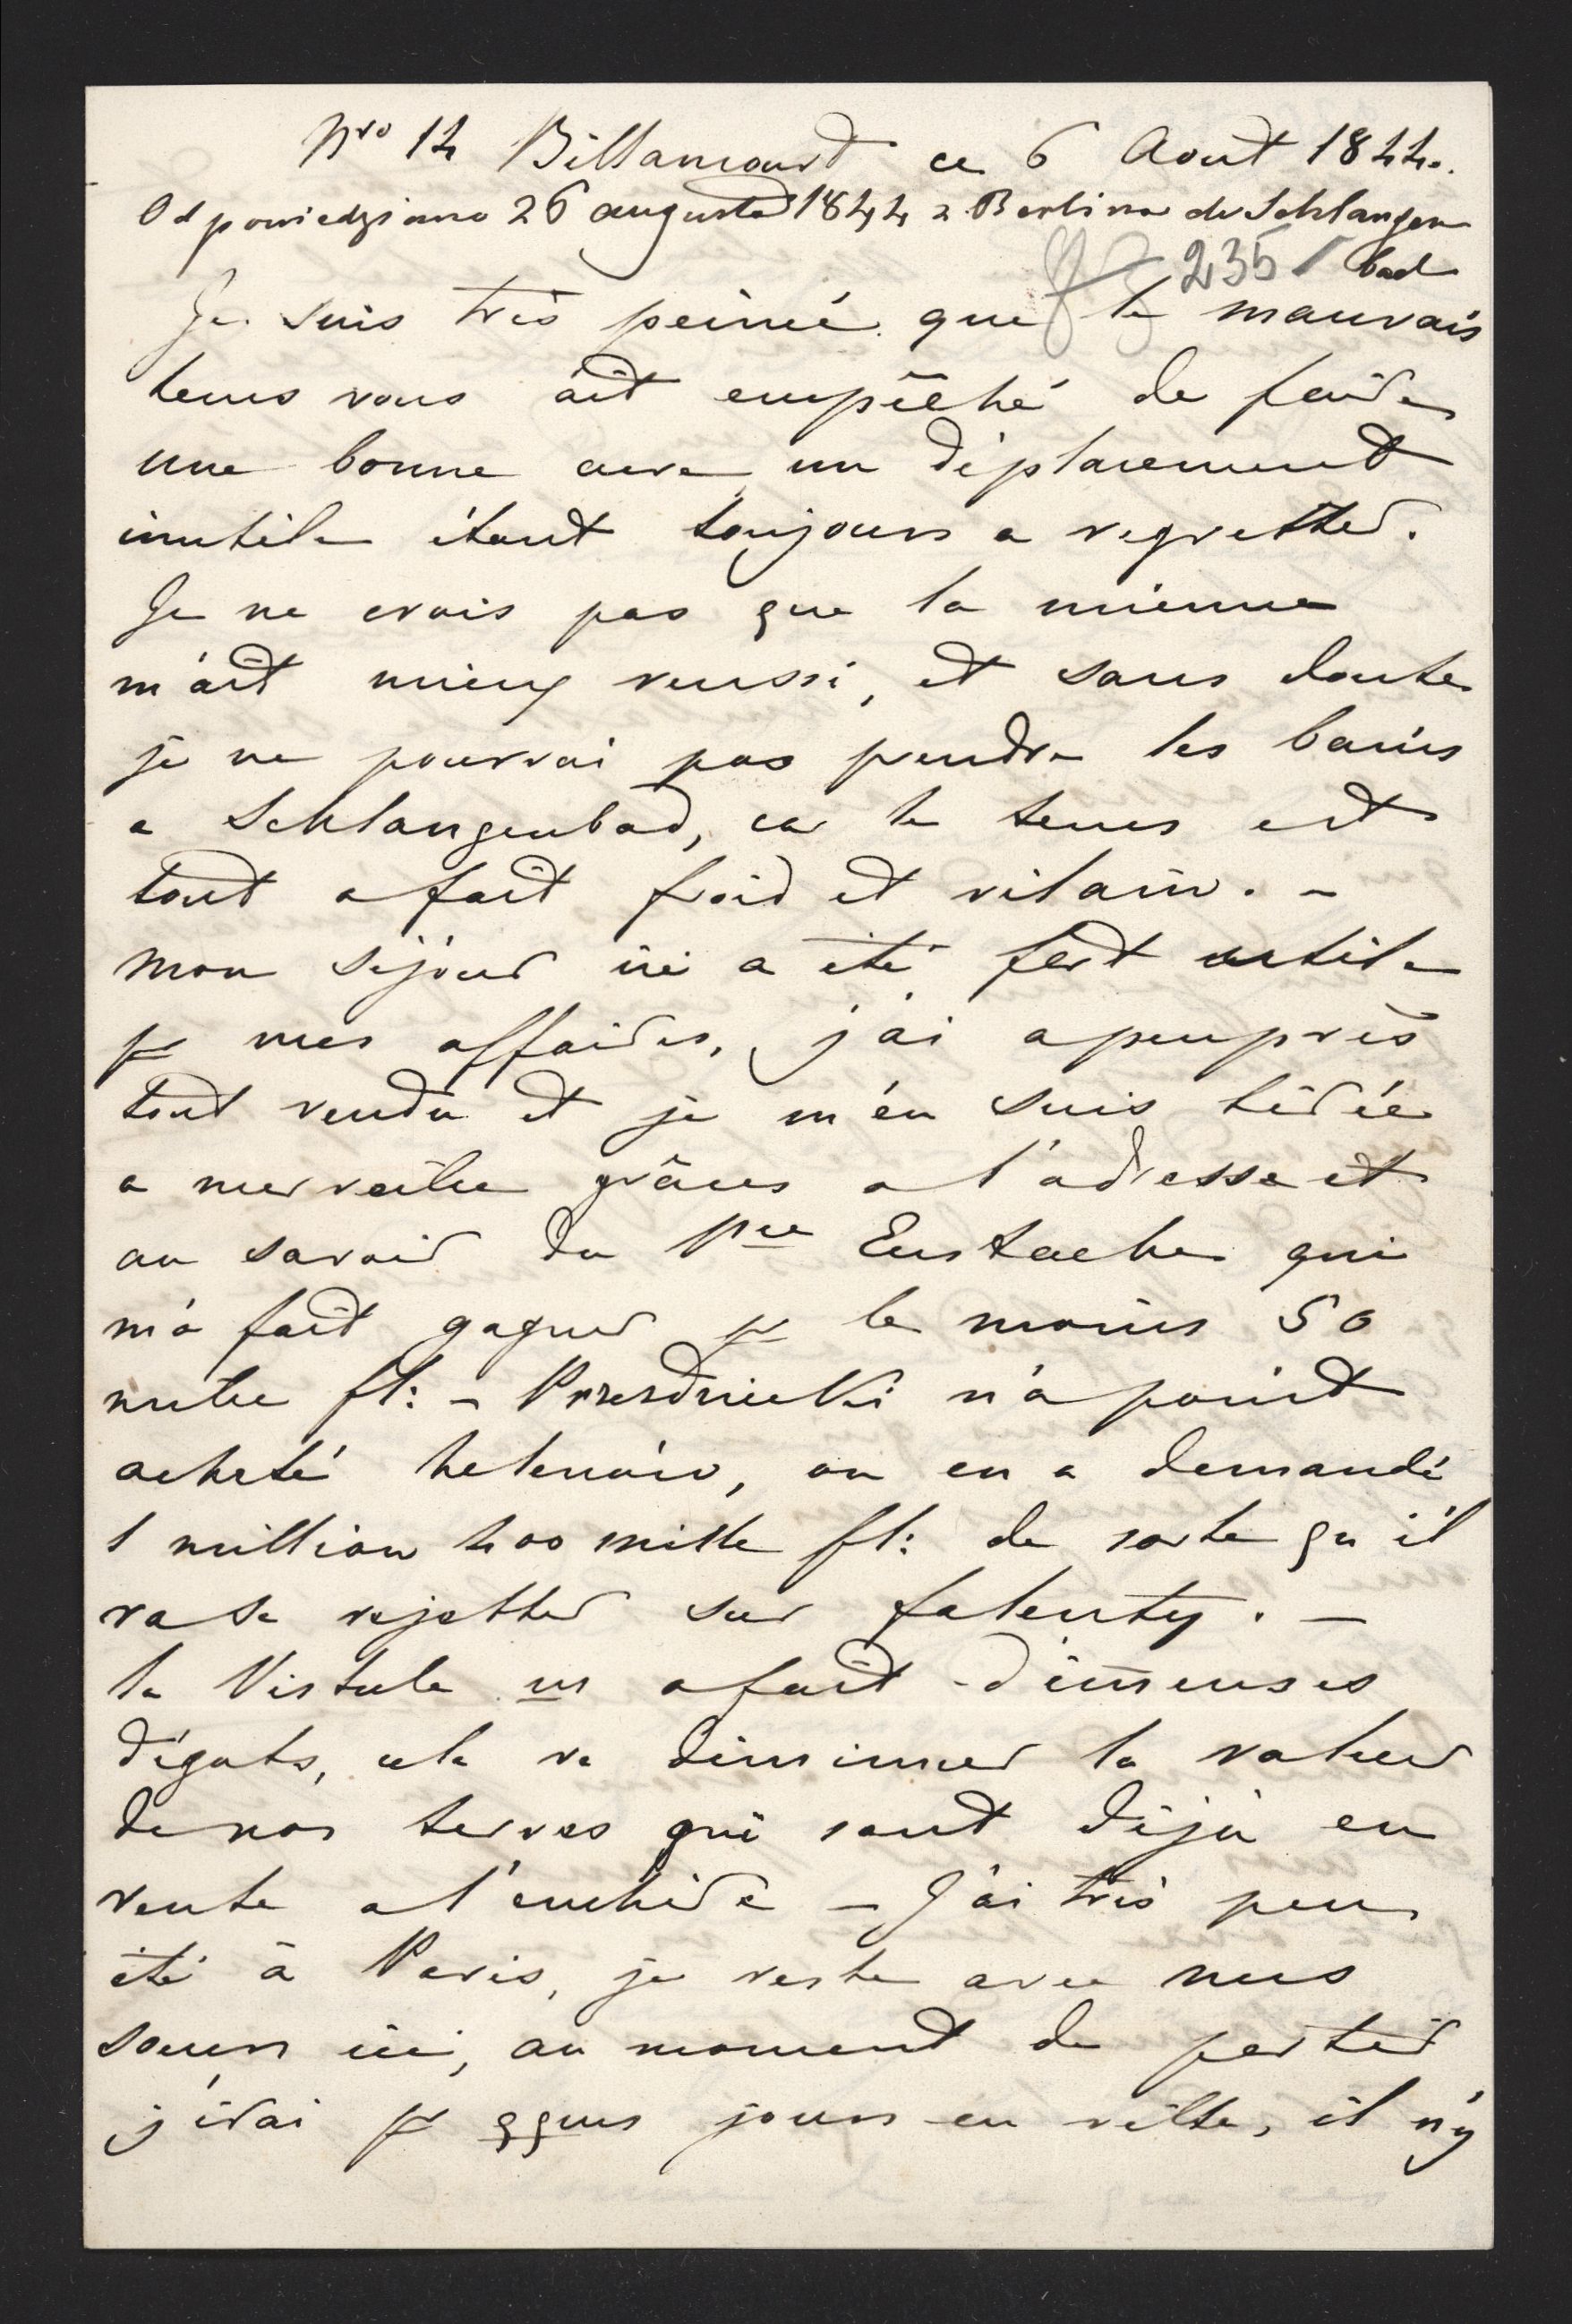 Nro 14 Billancourt ce 6 Aout 1844.
Odpowiedziano 26 augusta 1844 z Berlina do Schlangen
235 bad
Je suis très peiné que le mauvais
tems vous ait empêché de faire
une bonne cure, un déplacement
inutile étant toujours a regretter.
Je ne crois pas que la mienne
m'ait mieux reussi, et sans doute
je ne pourrai pas prendre les bains
a Schlangenbad, car le tems est
tout a fait froid et vilain. -
Mon séjour ici a été fort utile
pr mes affaires, j'ai apeuprès
tout vendu et je m'en suis tirée
a merveille grâces a l'adresse et
au savoir du Pce Eustache qui
m'a fait gagner pr le moins 50
mille fl: - Przezdziecki n'a point
acheté helenow, on en a demandé
1 million 400 mille fl: de sorte qu'il
va se rejetter sur falenty. -
la Vistule a fait d'immenses
dégats, cela va diminuer la valeur
de nos terres qui sont déjà en
vente a l'enchère - J'ai très peu
été à Paris, je reste avec mes
soeurs ici, au moment de partir
j'irai pr qques jours en ville, il n'y